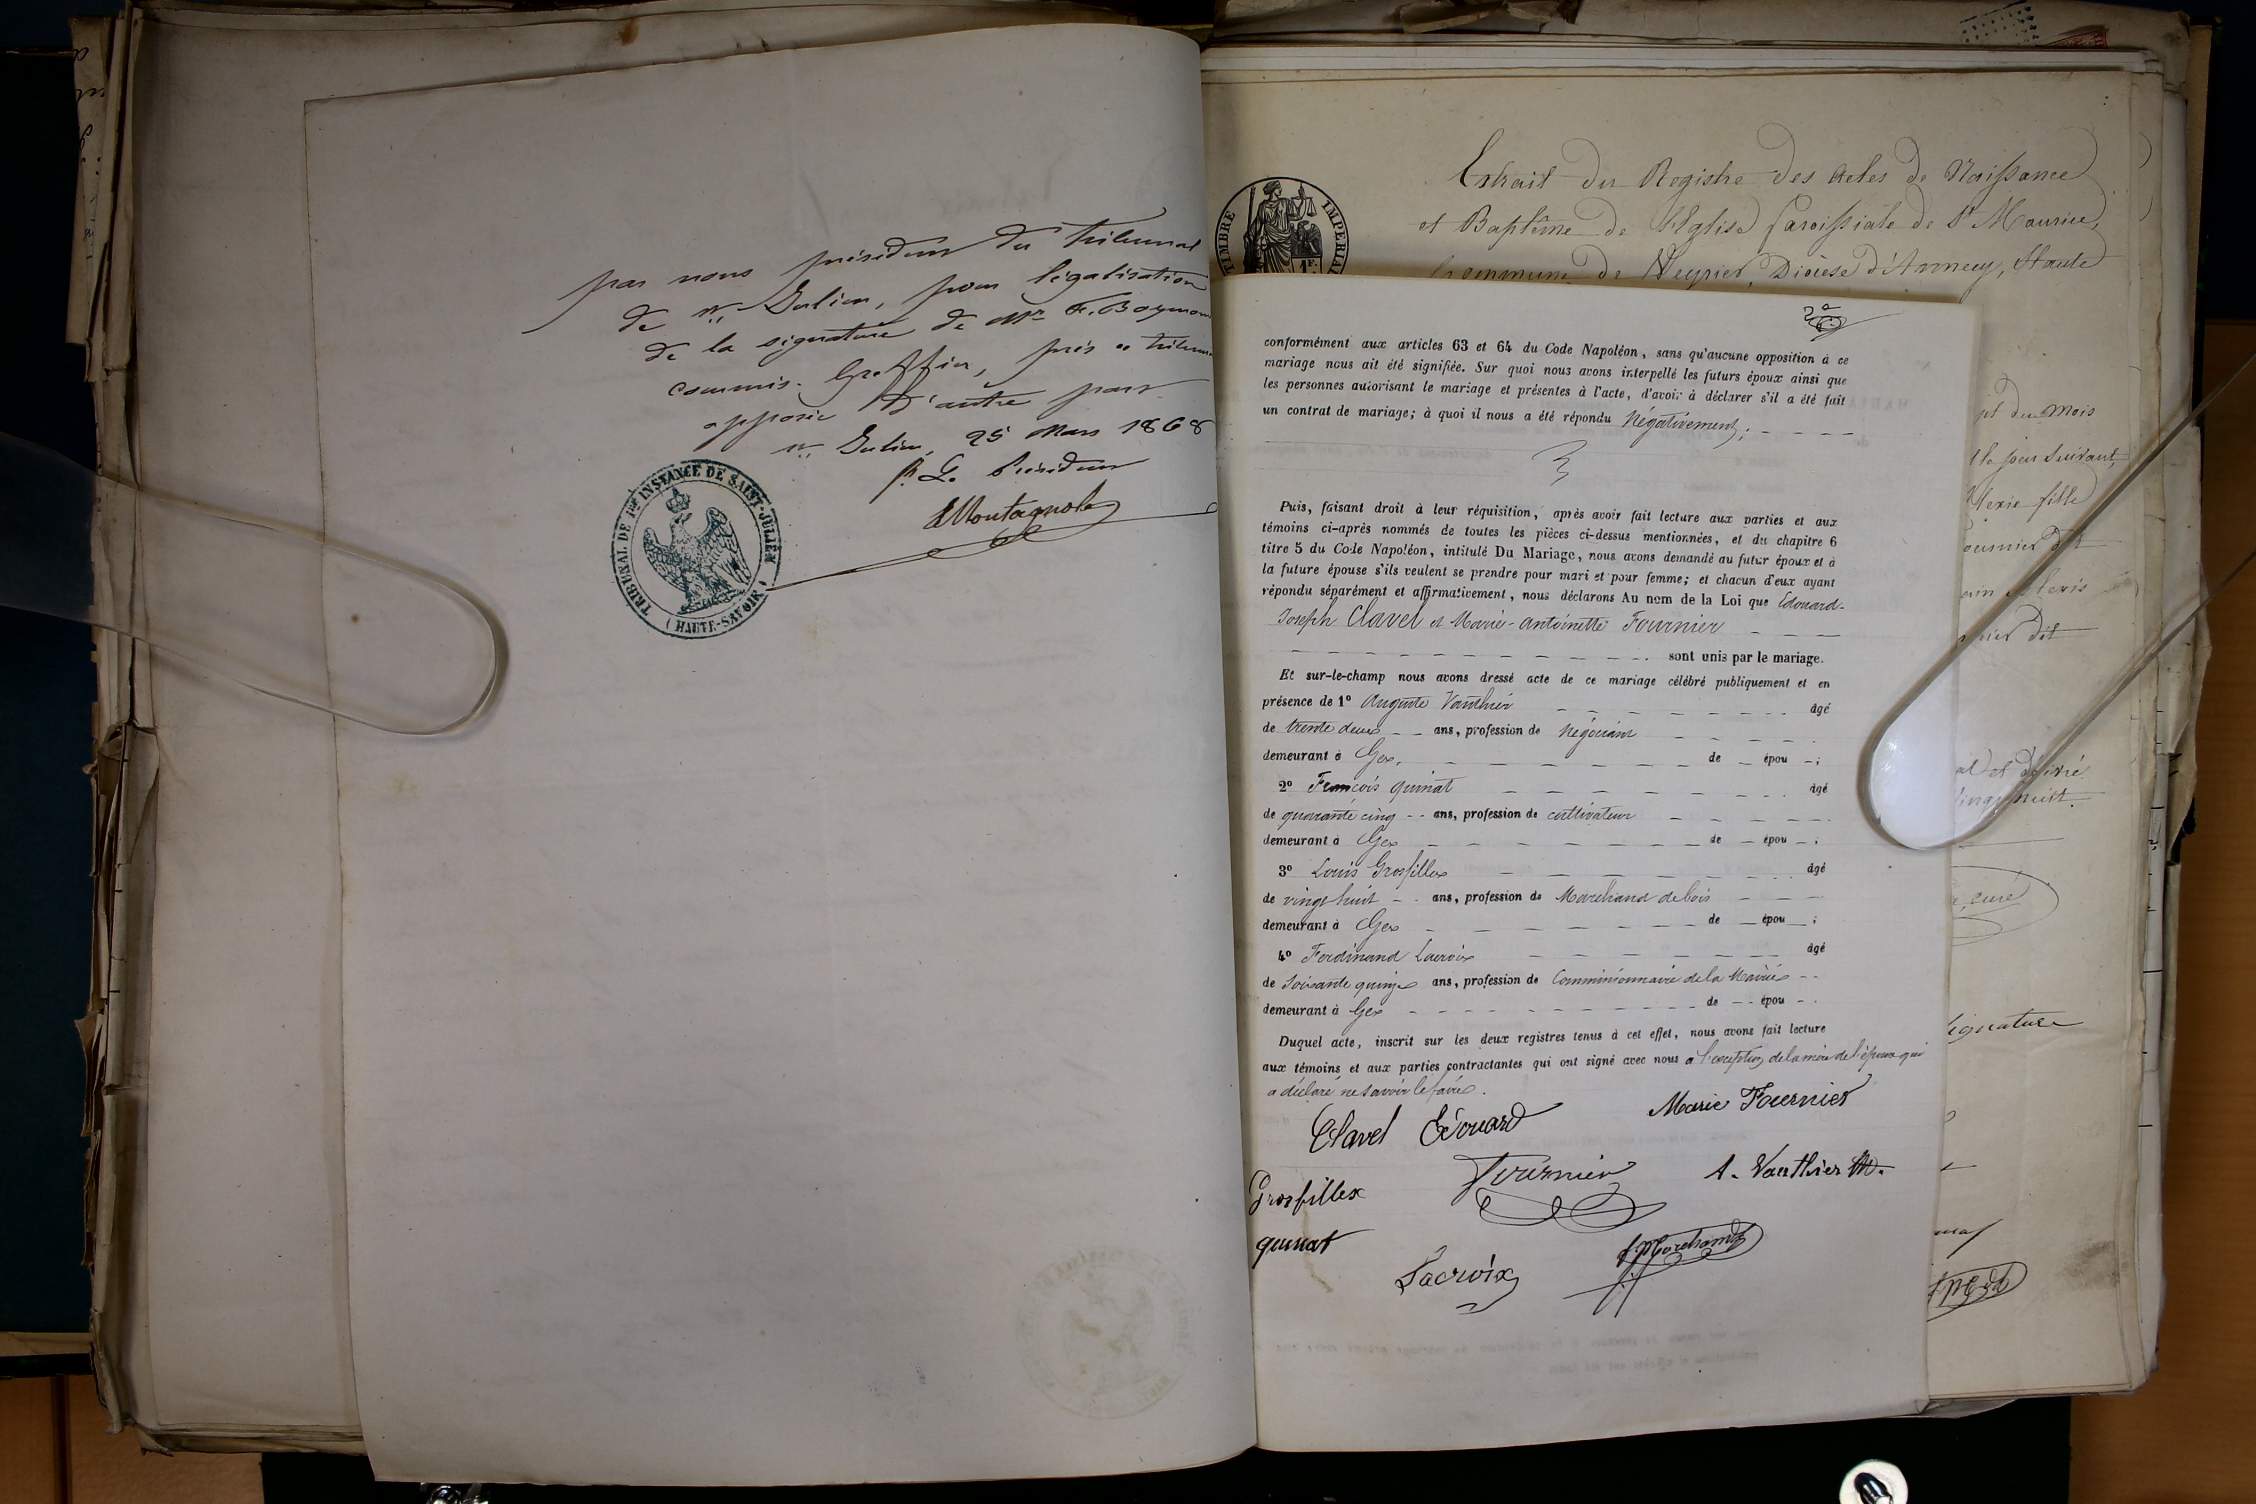 par nous président du tribunal
de St. Julien, pour légalisation
de la signature de Mr. F. Boymon
commis-Greffier, près ce tribun
apposée d'autre part
St. Julien, 25 Mars 1868
p. L. Président
Montagnole
TRIBUNAL DE 1ère INSTANCE DE SAINT-JULIEN
(HAUTE-SAVOIE)
Extrait du Registre des Actes de Naissance
et Baptême de l'Eglise Paroissiale de St Maurice,
Commune de Veyrier, Diocèse d'Annecy, Haute
TIMBRE IMPERIAL
1 F.
2e
conformément aux articles 63 et 64 du Code Napoléon, sans qu'aucune opposition à ce
mariage nous ait été signifiée. Sur quoi nous avons interpellé les futurs époux ainsi que
les personnes autorisant le mariage et présentes à l'acte, d'avoir à déclarer s'il a été fait
un contrat de mariage; à quoi il nous a été répondu Négativement;
Puis, faisant droit à leur réquisition, après avoir fait lecture aux parties et aux
témoins ci-après nommés de toutes les pièces ci-dessus mentionnées, et du chapitre 6
titre 5 du Code Napoléon, intitulé Du Mariage, nous avons demandé au futur époux et à
la future épouse s'ils veulent se prendre pour mari et pour femme; et chacun d'eux ayant
répondu séparément et affirmativement, nous déclarons Au nom de la Loi que Edouard-
Joseph Clavel et Marie-Antoinette Fournier
sont unis par le mariage.
Et sur-le-champ nous avons dressé acte de ce mariage célébré publiquement et en
présence de 1° Auguste Vauthier âgé
de trente deux ans, profession de Négociant
demeurant à Gex, de épou ;
2° François quinat âgé
de quarante cinq ans, profession de cultivateur
demeurant à Gex de épou ;
3° Louis Grosfillex âgé
de vingt huit ans, profession de Marchand de bois
demeurant à Gex de épou ;
4° Ferdinand Lacroix âgé
de Soixante quinze ans, profession de Commissionnaire de la Mairie
demeurant à Gex de épou
Duquel acte, inscrit sur les deux registres tenus à cet effet, nous avons fait lecture
aux témoins et aux parties contractantes qui ont signé avec nous à l'exception de la mère de l'épouse qui
a déclaré ne savoir le faire.
Clavel Edouard Marie Fournier
Fournier A. Vauthier
Grosfillex
quinat
Lacroix
jet du Mois
le jour suivant,
fille
ournier dit
Alexis
dit
et délivré
vingt huit.
curé
signature